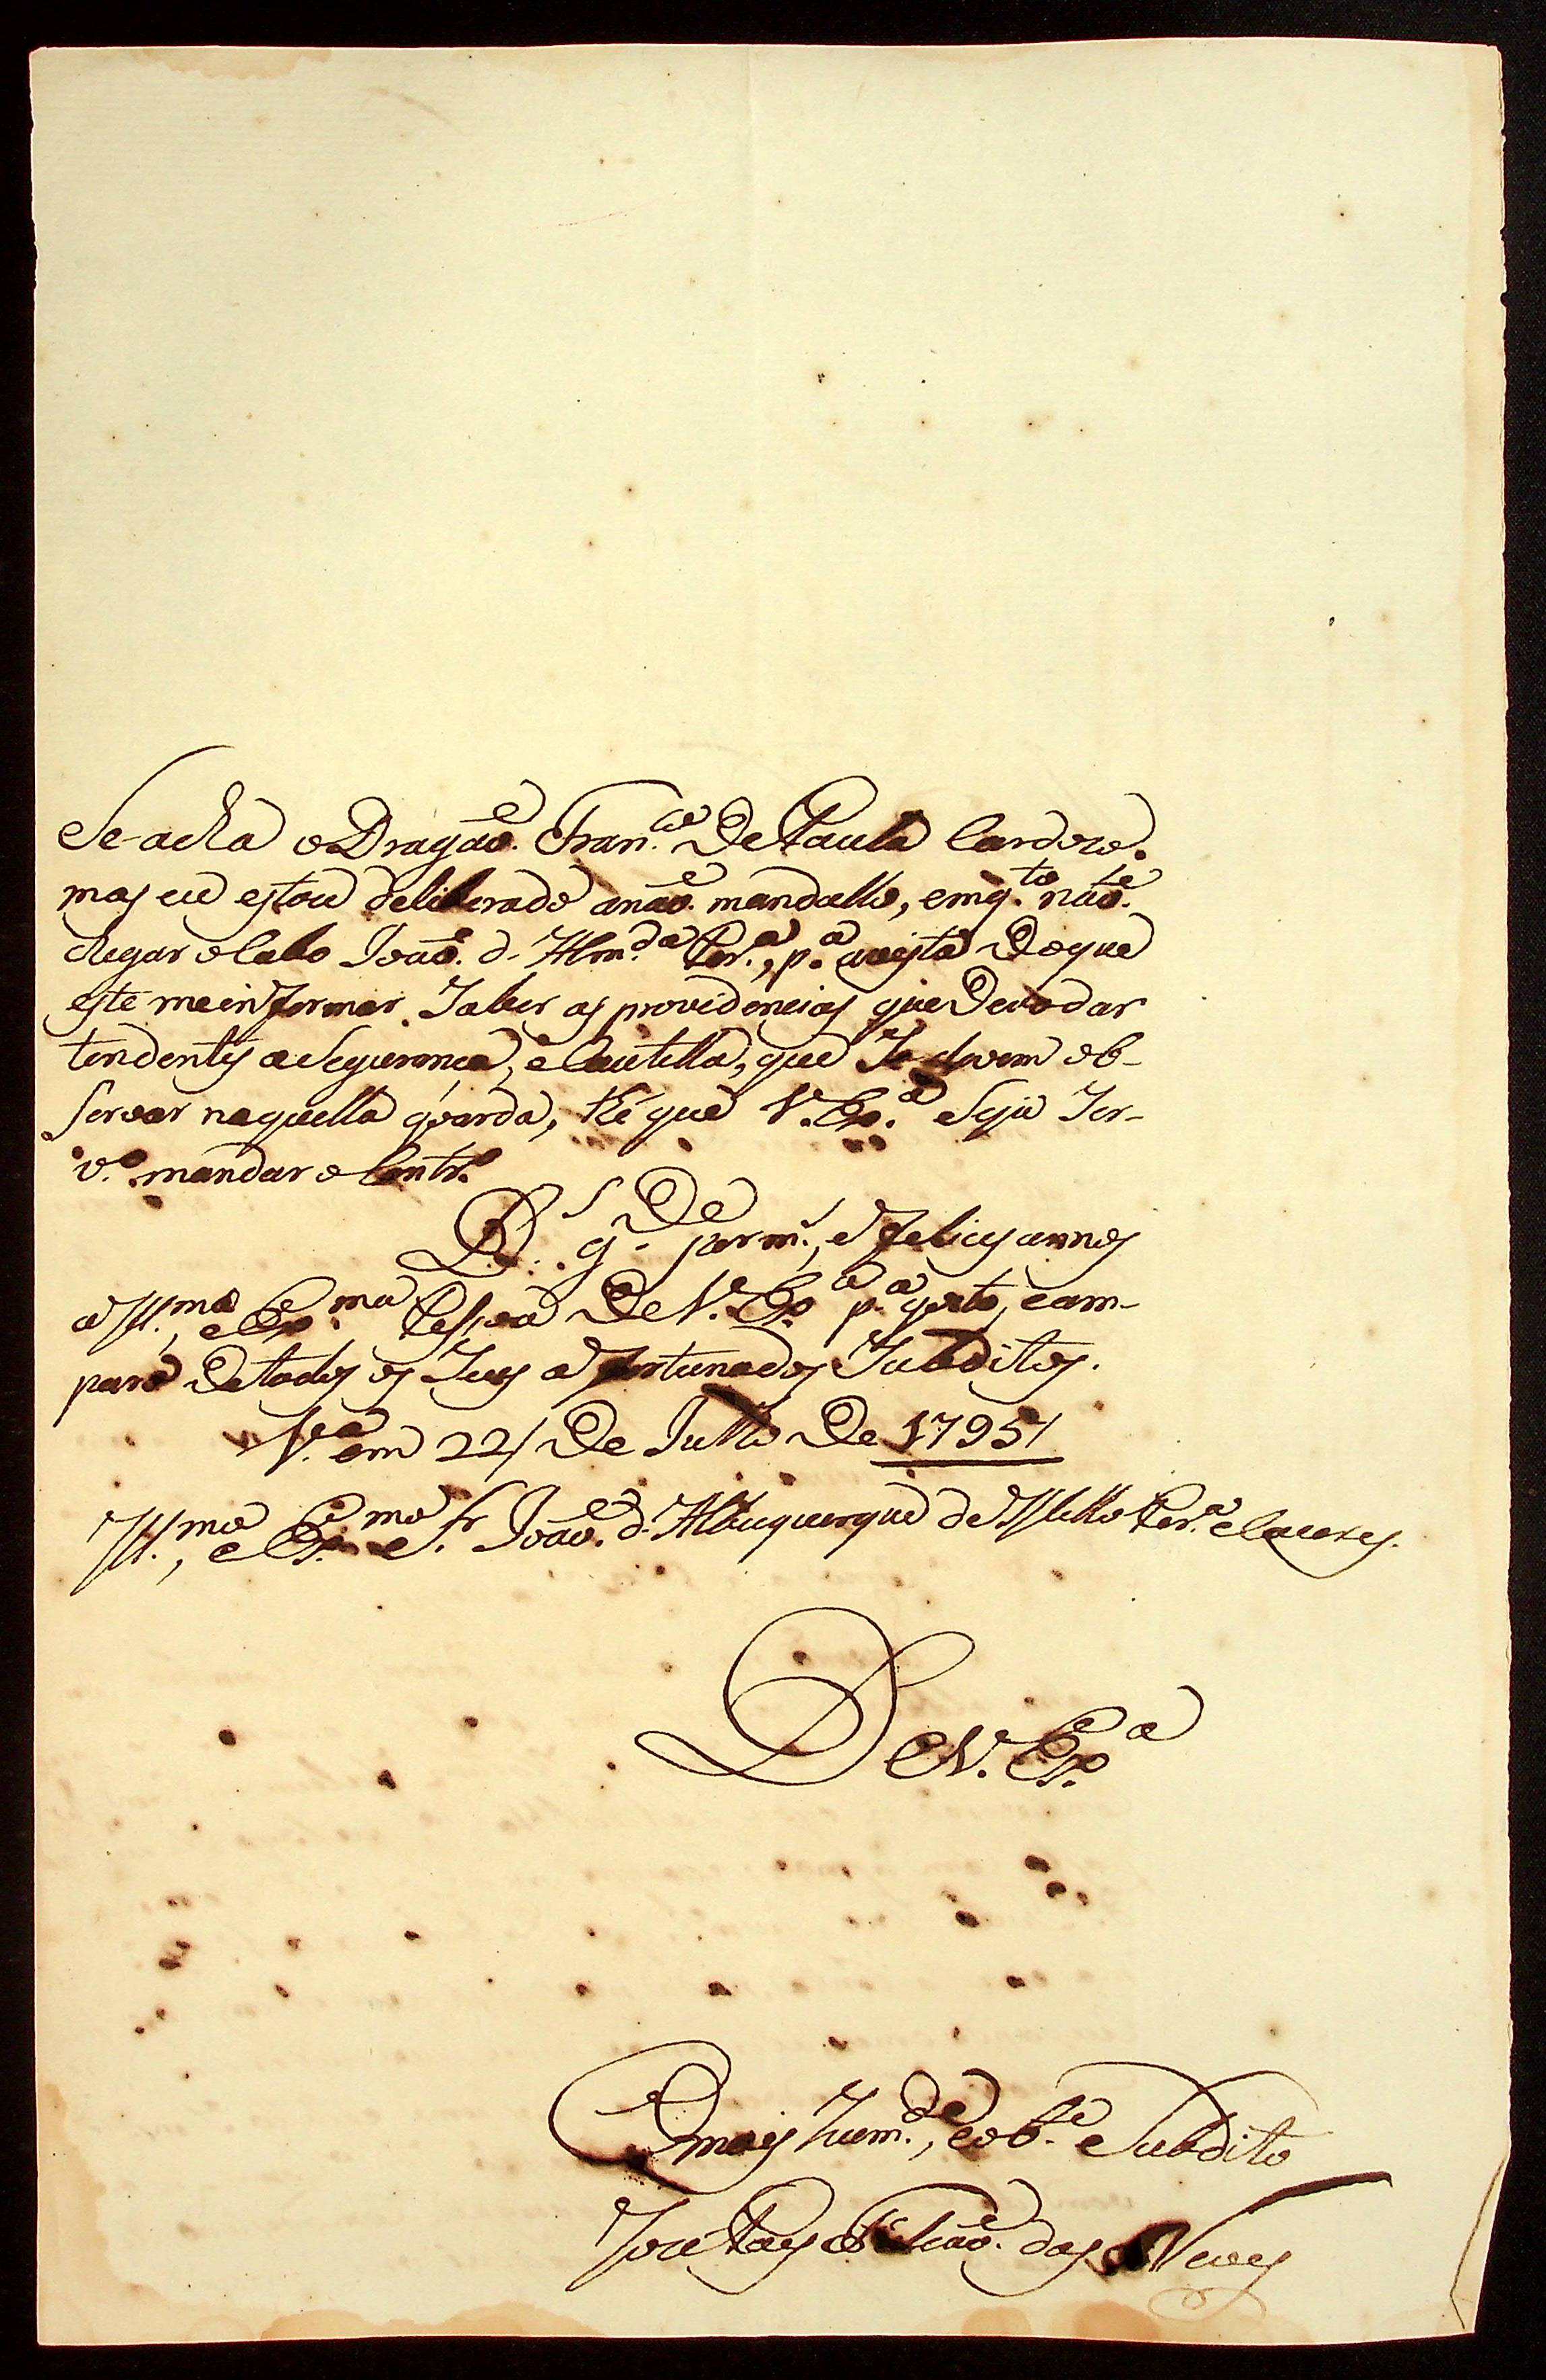 Se-acha o Dragão. Fran.co De Paula Cardozo.
mas eu estou deliberado anão. mandallo, emq.to não.
chegar o Cabo João. d'Alm.da Per.a, p.a avista Doque
este meinformar Saber as providencias que Devodar
tendentes aSegurança, e Cautella, que Se-devem ob-
servar naquella goarda, thé que V. Ex.a Seja Ser-
v.o mandar o Contr.o
D.s g.De por m.s, e felices annos
a Ill.ma, e Ex.ma Pessoa De V. Ex.a p.a gosto, eam-
paro Detodos os Seus afortunados Subditos.
V.a em 22/ De Julho De 1795/
Ill.mo, e Ex.mo Sr. João. d'Albuquerque de Mello Per.a e Caceres.
De V. Ex.a
O mais hum.de, eob.te Subdito
das Neves